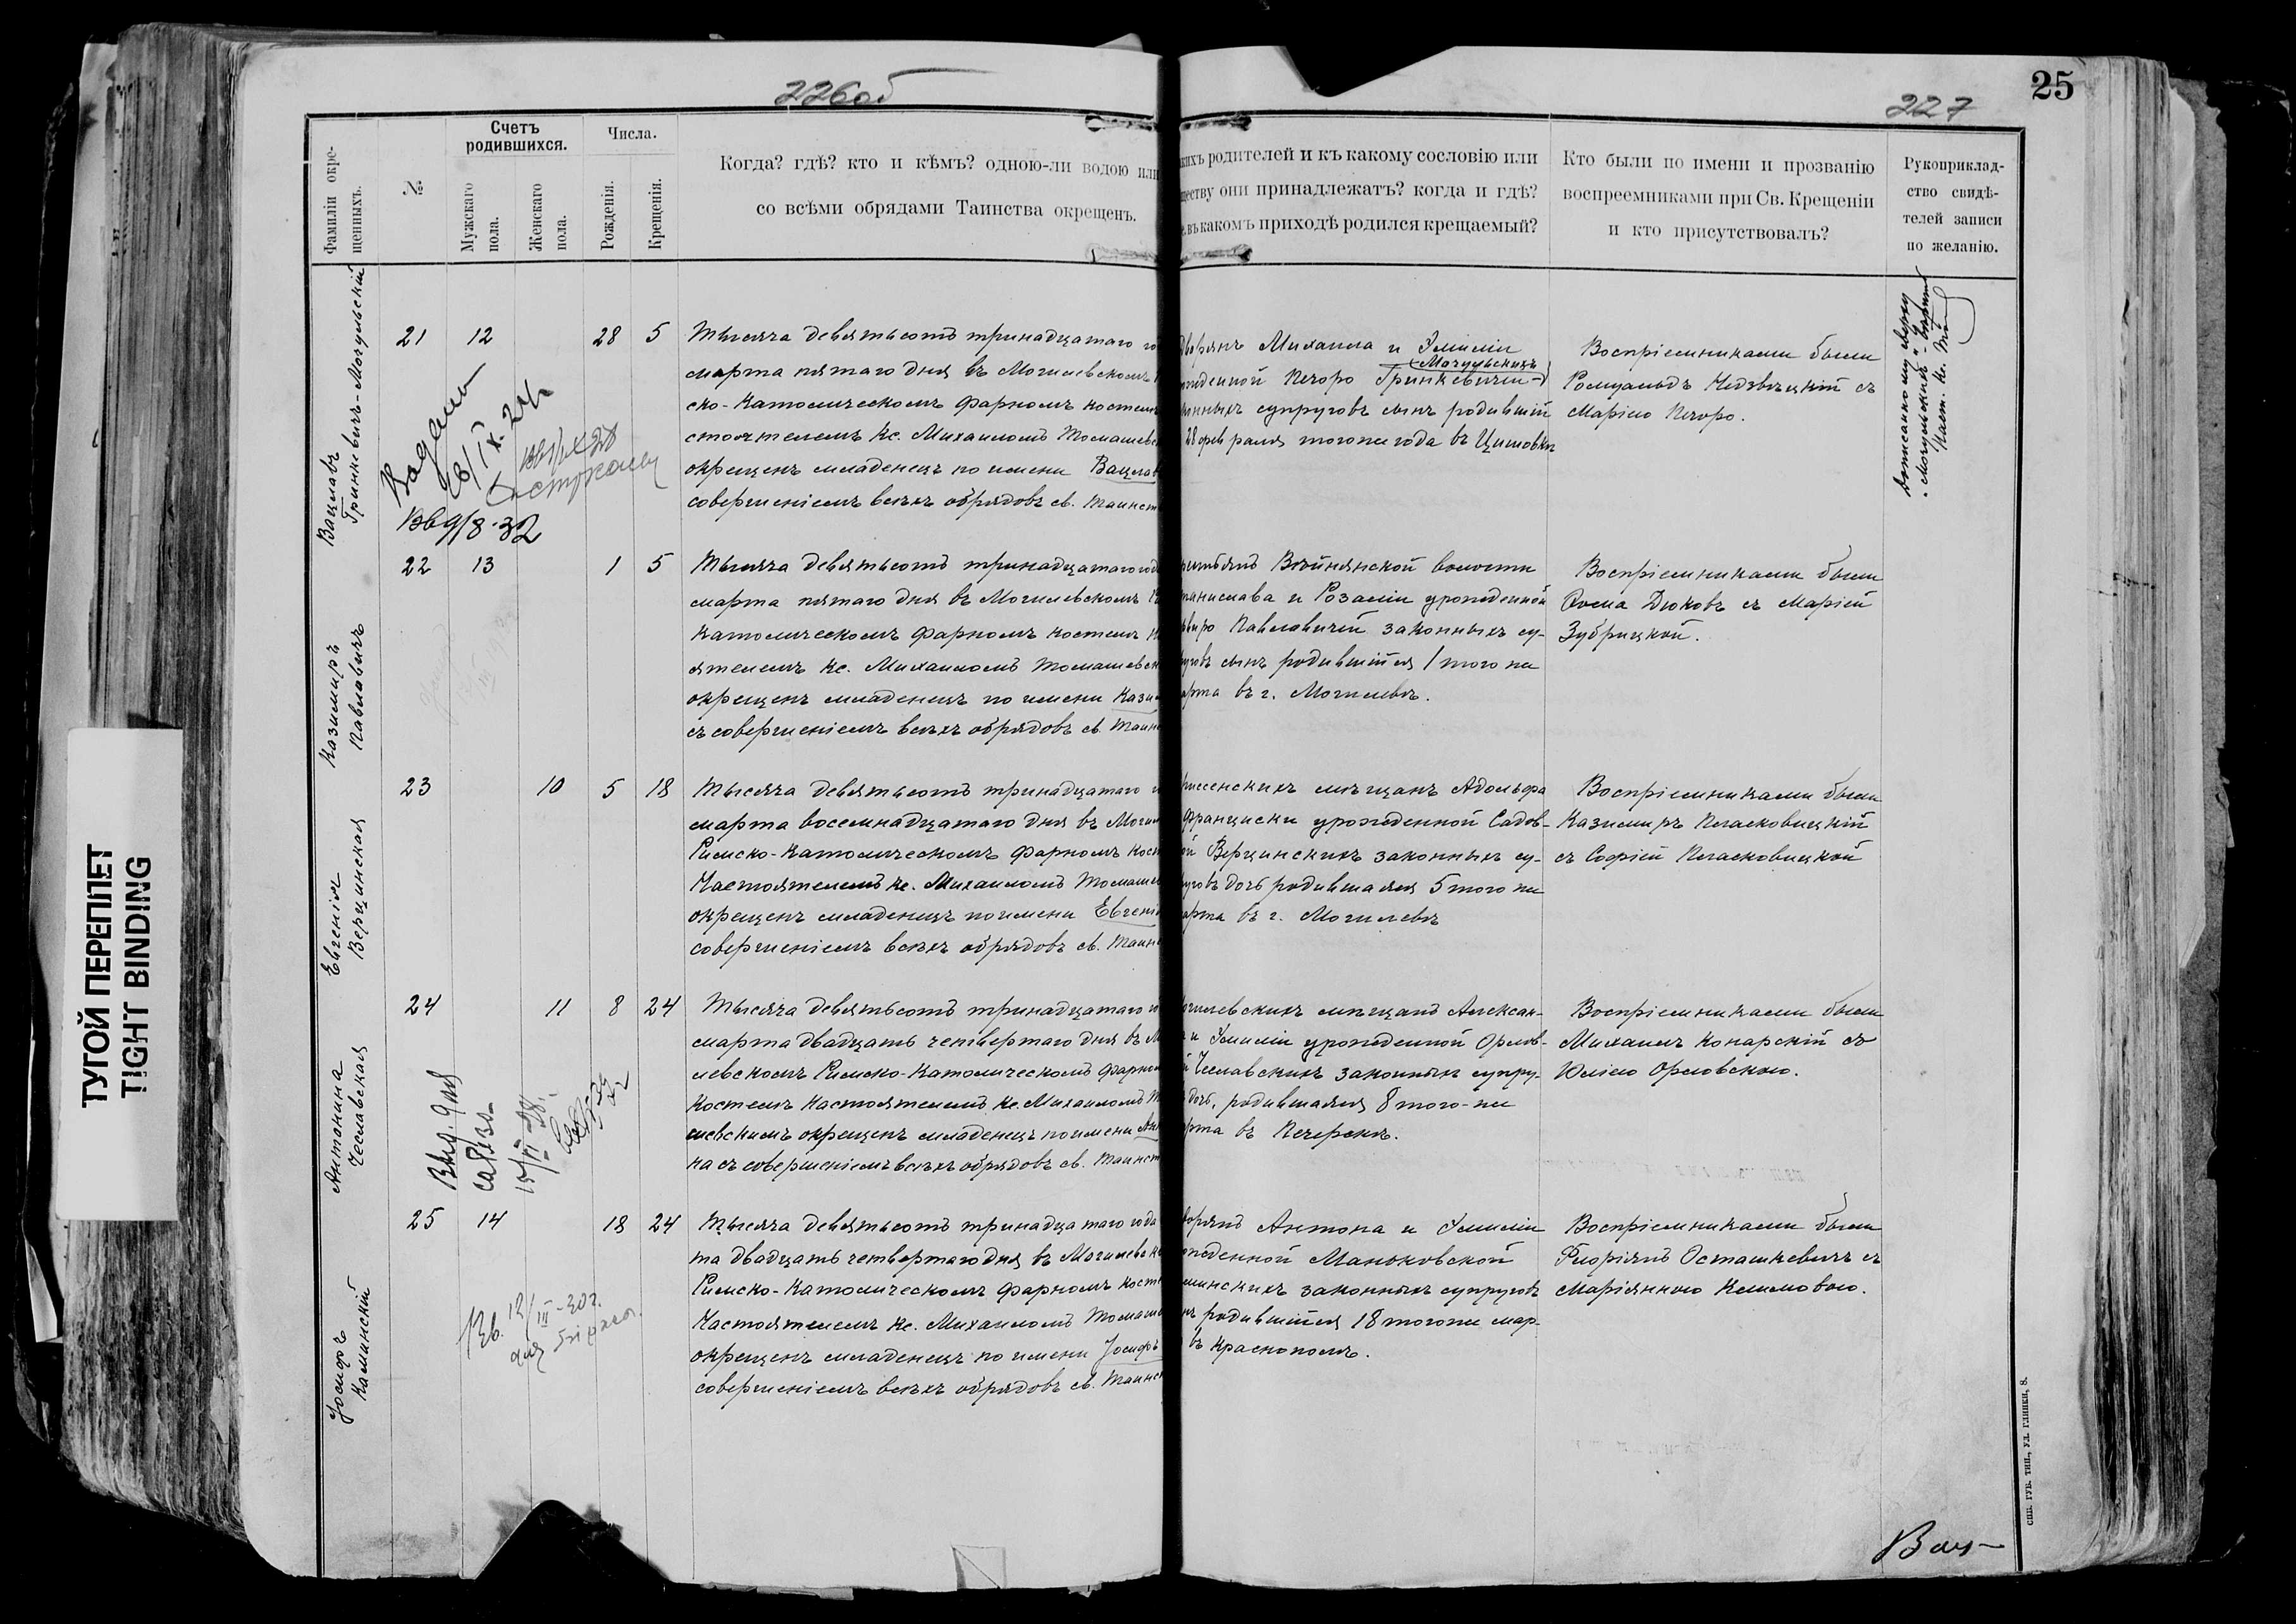 226об
227
25
ТУГОЙ ПЕРЕПЛЕТ
TIGHT BINDING
Фамиліи окре-
щенныхъ.
№
Счетъ
родившихся.
Мужскаго
пола.
Женскаго
пола.
Числа.
Рожденія.
Крещенія.
Когда? гдѣ? кто и кѣмъ? одною-ли водою или
со всѣми обрядами Таинства окрещенъ.
кихъ родителей и къ какому сословію или
ществу они принадлежатъ? когда и гдѣ?
въ какомъ приходѣ родился крещаемый?
Кто были по имени и прозванію
воспреемниками при Св. Крещеніи
и кто присутствовалъ?
Рукоприклад-
ство свидѣ-
телей записи
по желанію.
Вацлавъ
Гринкевичъ-Мочульскій
21 12 28 5
Тысяча девятьсотъ тринадцатаго го
марта пятаго дня въ Могилевскомъ
ско-Католическомъ фарномъ костелѣ
стоятелемъ Кс. Михаиломъ Томашевс
окрещенъ младенецъ по имени Вацлав
совершеніемъ всѣхъ обрядовъ св. Таинст
дворянъ Михаила и Эмиліи
Мочульскихъ
рожденной Пчоро Гринкевичей-
конныхъ супруговъ сынъ родившій
28 февраля того же года въ
Воспріемниками были
Ромуальдъ Недзвецкій съ
Маріею Пчоро.
18/IX.24
9/8-32
Казимиръ
Павловичъ
22 13 1 5
Тысяча девятьсотъ тринадцатаго года
марта пятаго дня въ Могилевскомъ Р
Католическомъ фарномъ костелѣ Н
ятелемъ Кс. Михаиломъ Томашевск
окрещенъ младенецъ по имени Кази
съ совершеніемъ всѣхъ обрядовъ св. Таин
рестьянъ Войнянской волости
танислава и Розаліи урожденной
Павловичей законныхъ су-
руговъ сынъ родившійся 1 того же
арта въ г. Могилевѣ.
Воспріемниками были
Фома Дюковъ съ Маріей
Зубрицкой.
Евгенія
Верцинская
23 10 5 18
Тысяча девятьсотъ тринадцатаго г
марта восемнадцатаго дня въ Могил
Римско-Католическомъ фарномъ кост
Настоятелемъ Кс. Михаиломъ Томаше
окрещенъ младенецъ по имени Евгені
совершеніемъ всѣхъ обрядовъ св. Таин
мѣщанъ Адольфа
Франциски урожденной Садов-
ой Верцинскихъ законныхъ су-
руговъ дочь родившаяся 5 того же
арта въ г. Могилевѣ
Воспріемниками были
Казимиръ Пласковицкій
съ Софіей Пласковицкой
Антонина
Чеславская
24 11 8 24
Тысяча девятьсотъ тринадцатаго го
марта двадцать четвертаго дня въ М
левскомъ Римско-Католическомъ фарно
Костелѣ Настоятелемъ Кс. Михаиломъ Т
шевскимъ окрещенъ младенецъ по имени Ант
на съ совершеніемъ всѣхъ обрядовъ св. Таинст
огилевскихъ мѣщанъ Алексан-
и Эмиліи урожденной Орлов-
й Чеславскихъ законныхъ супру-
дочь, родившаяся 8 того-же
рта въ Печерскѣ.
Воспріемниками были
Михаилъ Конарскій съ
Юліею Орловскою.
Іосифъ
Каминскій
25 14 18 24
Тысяча девятьсотъ тринадцатаго года
та двадцать четвертаго дня въ Могилевск
Римско-Католическомъ фарномъ Косте
Настоятелемъ Кс. Михаиломъ Томаше
окрещенъ младенецъ по имени Іосифъ
совершеніемъ всѣхъ обрядовъ св. Таинст
ворянъ Антона и Эмиліи
ожденной Маньковской
минскихъ законныхъ супруговъ
нъ родившійся 18 того же мар-
въ Краснополѣ.
Воспріемниками были
Флоріянъ Осташкевичъ съ
Маріянною Климовою.
12/III-30г.
СПБ. ГУБ. ТИП., УЛ. ГЛИНКИ, 8.